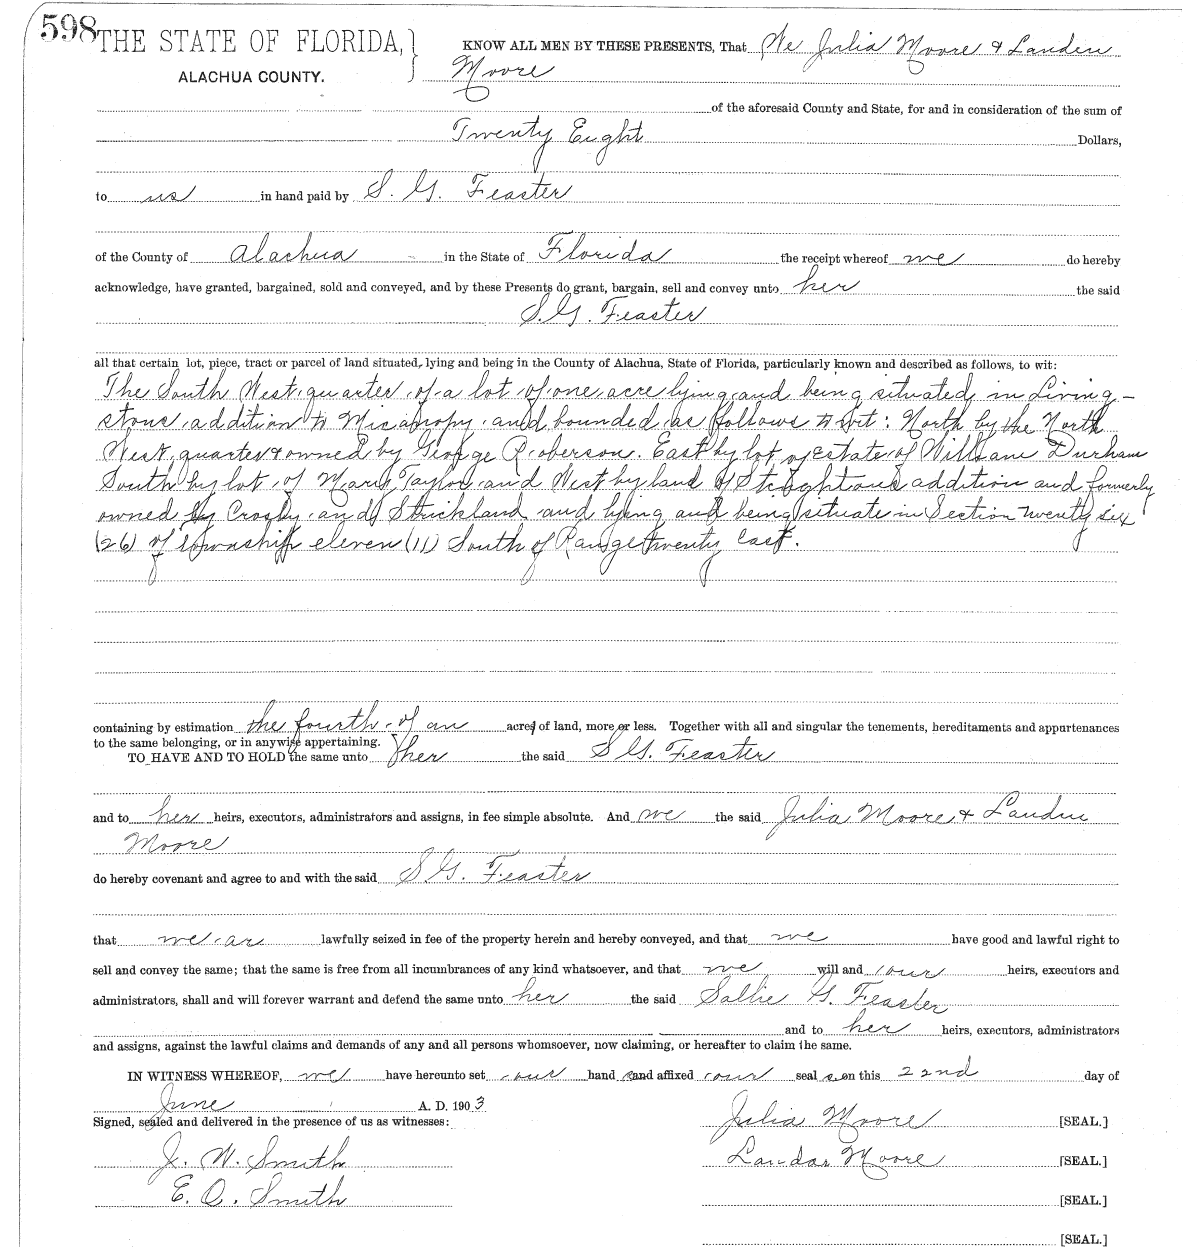 598
THE STATE OF FLORIDA,
ALACHUA COUNTY.
KNOW ALL MEN BY THESE PRESENTS, That We Julia Moore & Landon
Moore
of the aforesaid County and State, for and in consideration of the sum of
Twenty Eight Dollars,
to us in hand paid by S. G. Feaster
of the County of Alachua in the State of Florida the receipt whereof we do hereby
acknowledge, have granted, bargained, sold and conveyed, and by these Presents do grant, bargain, sell and convey unto her the said
S. G. Feaster
all that certain lot, piece, tract or parcel of land situated, lying and being in the County of Alachua, State of Florida, particularly known and described as follows, to wit:
The South West quarter of a lot of one acre lying and being situated in Living-
stons addition to Micanopy and bounded as follows to wit: North by the North
West quarter & owned by George Roberson. East by lot of estate of William Durham
South by lot of Mary Taylor and West by land of addition and formerly
owned by Crosby and Strickland and lying and being situate in Section twenty six
(26) of township eleven (11) South of Range twenty East.
containing by estimation the fourth of an acres of land, more or less. Together with all and singular the tenements, hereditaments and appurtenances
to the same belonging, or in anywise appertaining.
TO HAVE AND TO HOLD the same unto her the said S. G. Feaster
and to her heirs, executors, administrators and assigns, in fee simple absolute. And we the said Julia Moore & Landon
Moore
do hereby covenant and agree to and with the said S. G. Feaster
that we are lawfully seized in fee of the property herein and hereby conveyed, and that we have good and lawful right to
sell and convey the same; that the same is free from all incumbrances of any kind whatsoever, and that we will and our heirs, executors and
administrators, shall and will forever warrant and defend the same unto her the said Sallie G. Feaster
and to her heirs, executors, administrators
and assigns, against the lawful claims and demands of any and all persons whomsoever, now claiming, or hereafter to claim the same.
IN WITNESS WHEREOF, we have hereunto set our hand s and affixed our seal s on this 22nd day of
June A. D. 1903
Signed, sealed and delivered in the presence of us as witnesses:
Julia Moore [SEAL.]
J. W. Smith
Landon Moore [SEAL.]
E. Q. Smith
[SEAL.]
[SEAL.]